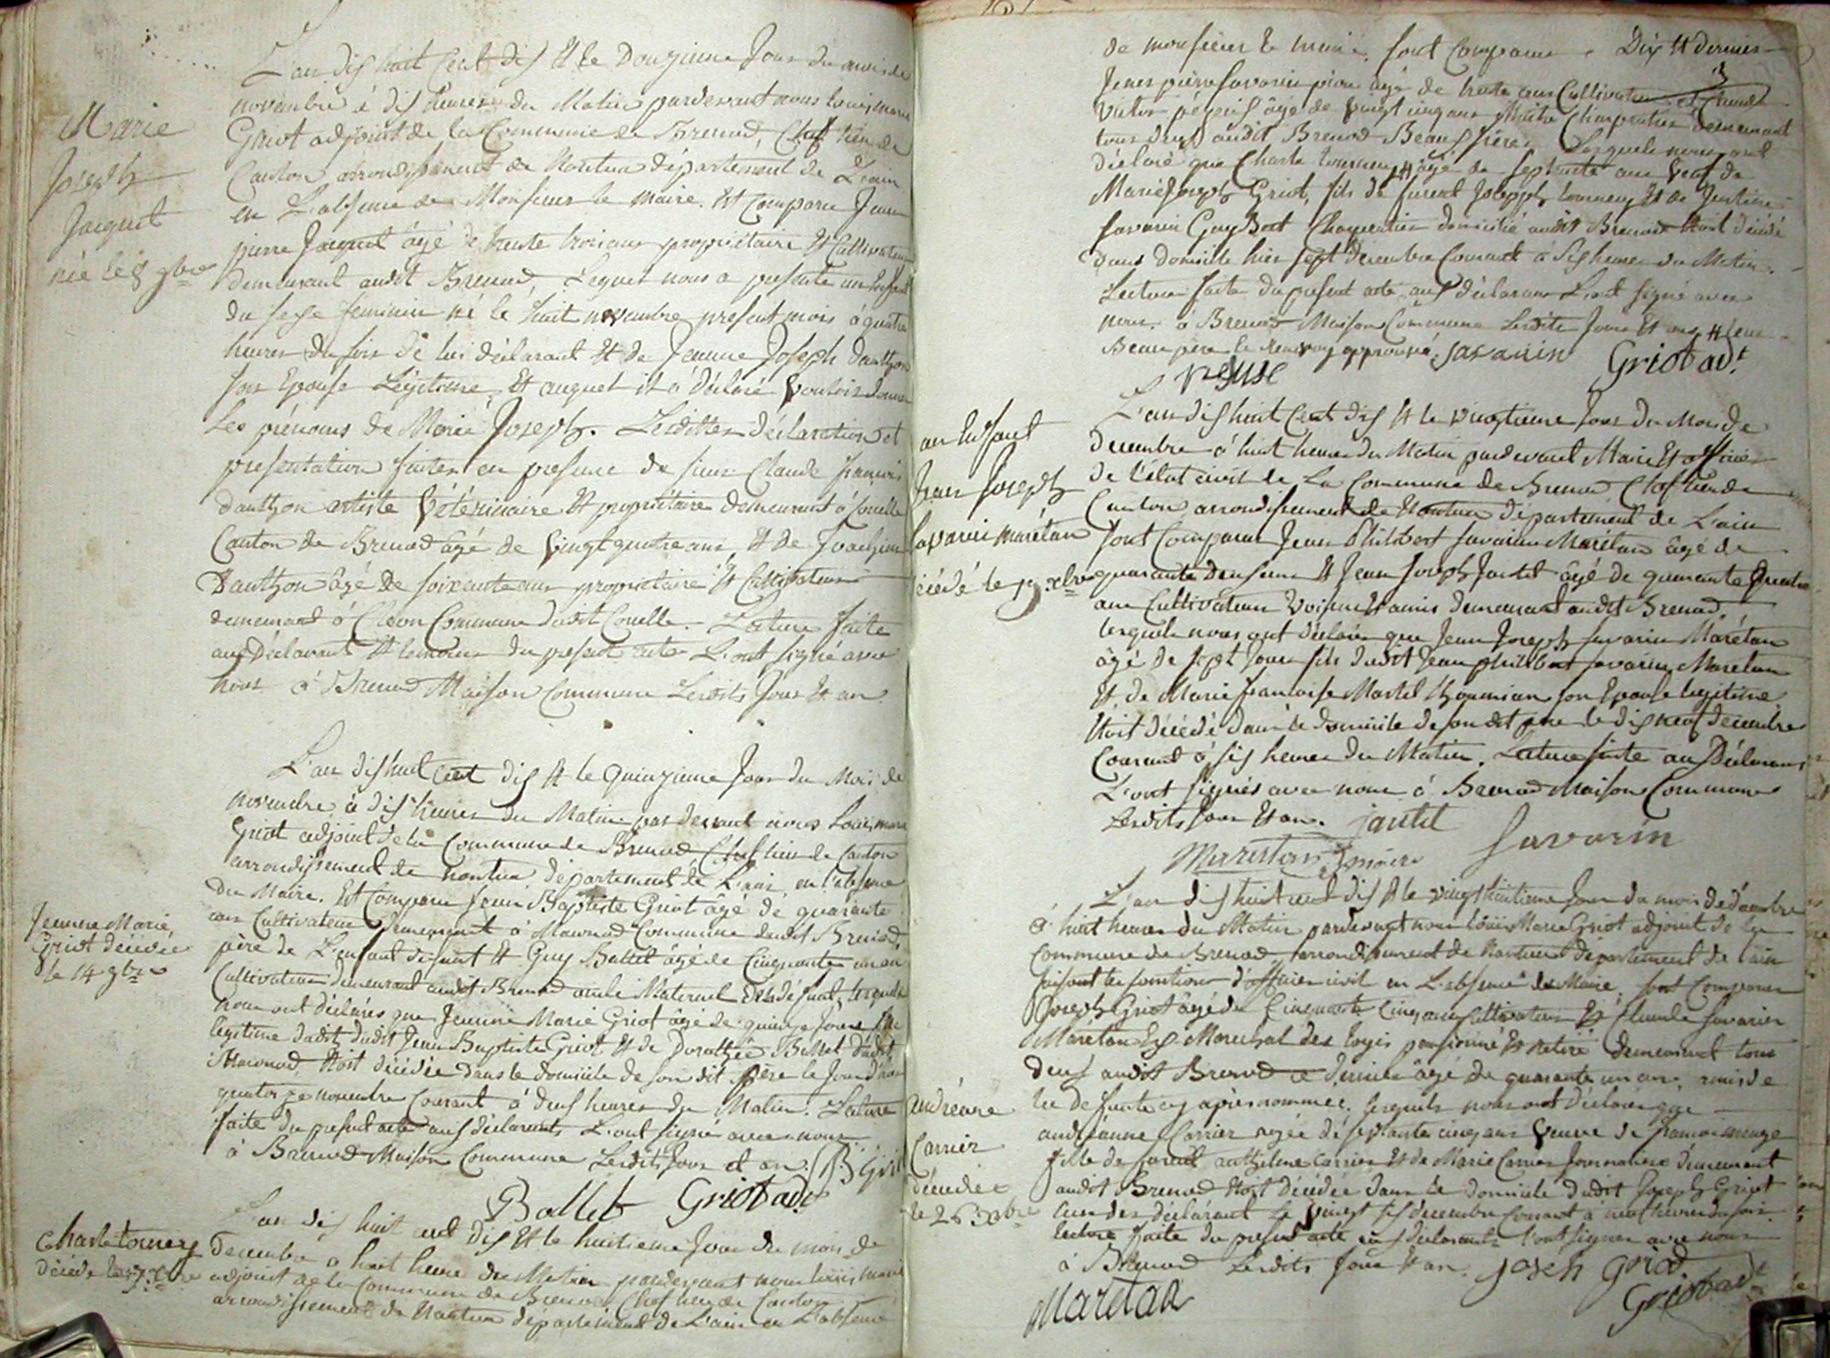 Marie
Joseph
Jacquet
née le 8 9bre
L'an dis huit Cent dis Et le Douzieme Jour du mois de
novembre à dis heures du Matin pardevant nous Louis marie
Griot adjoint de la Commune de Brenod Chef lieu de
Canton arrondissement de Nantua département de L'ain
en L'absence de Monsieur le maire. Est Comparu Jean
pierre Jacquet âgé de trente trois ans propriétaire Et Cultivateur
demeurant audit Brenod, Lequel nous a presenté un Enfant
du sexe feminin né le huit novembre present mois à quatre
heures du soir de lui déclarant Et de Jeanne Joseph Dauthon
son Epouse Légitime, Et auquel il a déclaré Vouloir donner
Les prénoms de Marie Joseph. Lesdittes déclaration et
presentation faites en presence de sieur Claude françois
dauthon artiste Vétérinaire Et propriétaire demeurant à Corcelle
Canton de Brenod âgé de Vingt quatre ans, Et de Joachim
Dauthon âgé de soixante ans propriétaire Et Cultivateur
demeurant à Cléon Commune dudit Corcelle. Lecture faite
aux Déclarant Et temoins du present acte L'ont signé avec
nous à Brenod Maison Commune Lesdits Jour Et an
Jeanne Marie
Griot décédée
le 14 9bre
L'an dis huit Cent dis Et le Quinzieme Jour du Mois de
novembre à dis heures du Matin par devant nous Louis marie
Griot adjoint de la Commune de Brenod Chef lieu de Canton
arrondissement de nantua département de L'ain, en l'absence
du Maire. Est Comparu Jean Baptiste Griot âgé de quarante
ans Cultivateur demeurant à Macornod Commune dudit Brenod,
père de L'enfant defunt Et Guy Ballet âgé de Cinquante un an
Cultivateur demeurant audit Brenod oncle Maternel dela defunt, lesquels
nous ont déclarés que Jeanne Marie Griot âgé de quinze Jours fille
legitime dudit Jean Baptiste Griot Et de Dorothée Ballet dudit
Macornod Etoit décédée dans le domicile de son dit père le Jour d'hier
quatorze novembre Courant à deux heures du Matin. Lecture
faite du present acte aux déclarants L'ont signé avec nous
à Brenod Maison Commune Lesdits Jour et an. J B Griot
Ballet Griot adt
Charle tournery
décédé le 7 Xbre
L'an dis huit cent Dis Et le huitieme Jour du mois de
Decembre a huit heure du Matin pardevant nous Louis marie
adjoint de la Commune de Brenod Chef lieu de Canton
arrondissement de Nantua département de L'ain en L'absence
de monsieur le maire, sont Comparu
Jean pierre Savarin pion âgé de trente ans Cultivateur et Claude
Victor âgé de vingt cinq ans Maitre Charpentier demeurant
tous deux audit Brenod Beaux freres. Lesquels nous ont
déclaré que Charle tournery âgé de septante ans Veuf de
Marie Joseph Griot, fils de furent Joseph tournery Et de Justine
Savarin Guy Bost Charpentier domicilié audit Brenod Etoit décédé
dans domicile hier sept Decembre Courant à Sis heures du Matin.
Lecture faite du present acte aux déclarans L'ont signé avec
nous à Brenod Maison Commune Lesdits Jour Et an
Beau père le renvoy approuvé. Savarin Griot adt
un Enfant
Jean Joseph
Savarin marétan
décédé le 19 Xbre
L'an dis huit Cent dis Et le vingtieme Jour du Mois de
Decembre à huit heures du Matin pardevant Maire Et officier
de l'état civil de La Commune de Brenod Chef lieu de
Canton arrondissement de Nantua département de L'ain
sont Comparus Jean Philibert Savarin Marétan âgé de
quarante deux ans Et Jean Joseph Jantet âgé de quarante Quatre
ans Cultivateurs Voisins Et amis demeurant audit Brenod
lesquels nous ont déclaré que Jean Joseph Savarin Marétan
âgé de sept Jours fils dudit Jean philibert Savarin Maretan
Et de Marie françoise Martel son Epouse legitime
Etoit décédé dans le domicile de son dit père le dis neuf decembre
Courant à sis heures du Matin. Lecture faite aux Déclarans
L'ont signés avec nous à Brenod Maison Commune
Lesdits Jour Et an. jantet Savarin
maire
andréanne
Carrier
décédée
le 26 Xbre
L'an dis huit cent dis Et le vingt huitieme Jour du mois de decembre
à huit heures du Matin pardevant nous Louis Marie Griot adjoint de la
Commune de Brenod arrondissement de Nantua département de l'ain
faisant les fonctions d'officier civil en L'absence du Maire, sont Comparus
Joseph Griot âgé de Cinquante Cinq ans Cultivateur Et Claude Savarin
Marétan Ex Marechal des logis pensionné Et retiré demeurant tous
deux audit Brenod ce dernier âgé de quarante un ans, amis de
la defunte cy après nommée. lesquels nous ont déclarer que
andréanne Carrier agée de septante cinq ans Veuve de
fille de furent anthelme Carrier Et de Marie Carrier Journaliere demeurant
audit Brenod Etoit décédée dans le domicile dudit Joseph Griot
L'un des declarant Le Vingt sis decembre Courant à neuf heures du soir.
lecture faite du present acte aux déclarants l'ont signer avec nous
à Brenod Lesdits Jour Et an. Joseh Griot
Maretan Griot adt